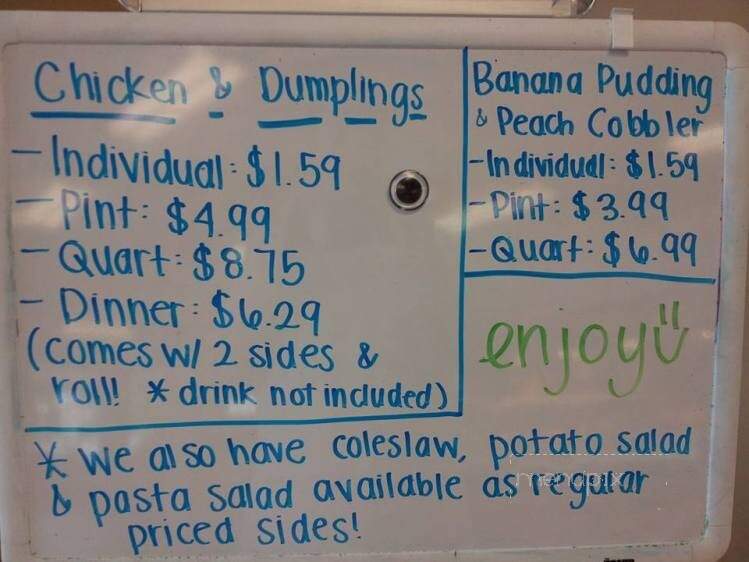 Chicken & Dumplings
- Individual: $1.59
- Pint: $4.99
- Quart: $8.75
- Dinner: $6.29
(comes w/ 2 sides &
roll! * drink not included)
Banana Pudding
& Peach Cobbler
- Individual: $1.59
- Pint: $3.99
- Quart: $6.99
enjoy
* we also have coleslaw, potato salad
& pasta salad available as regular
priced sides!
menupix